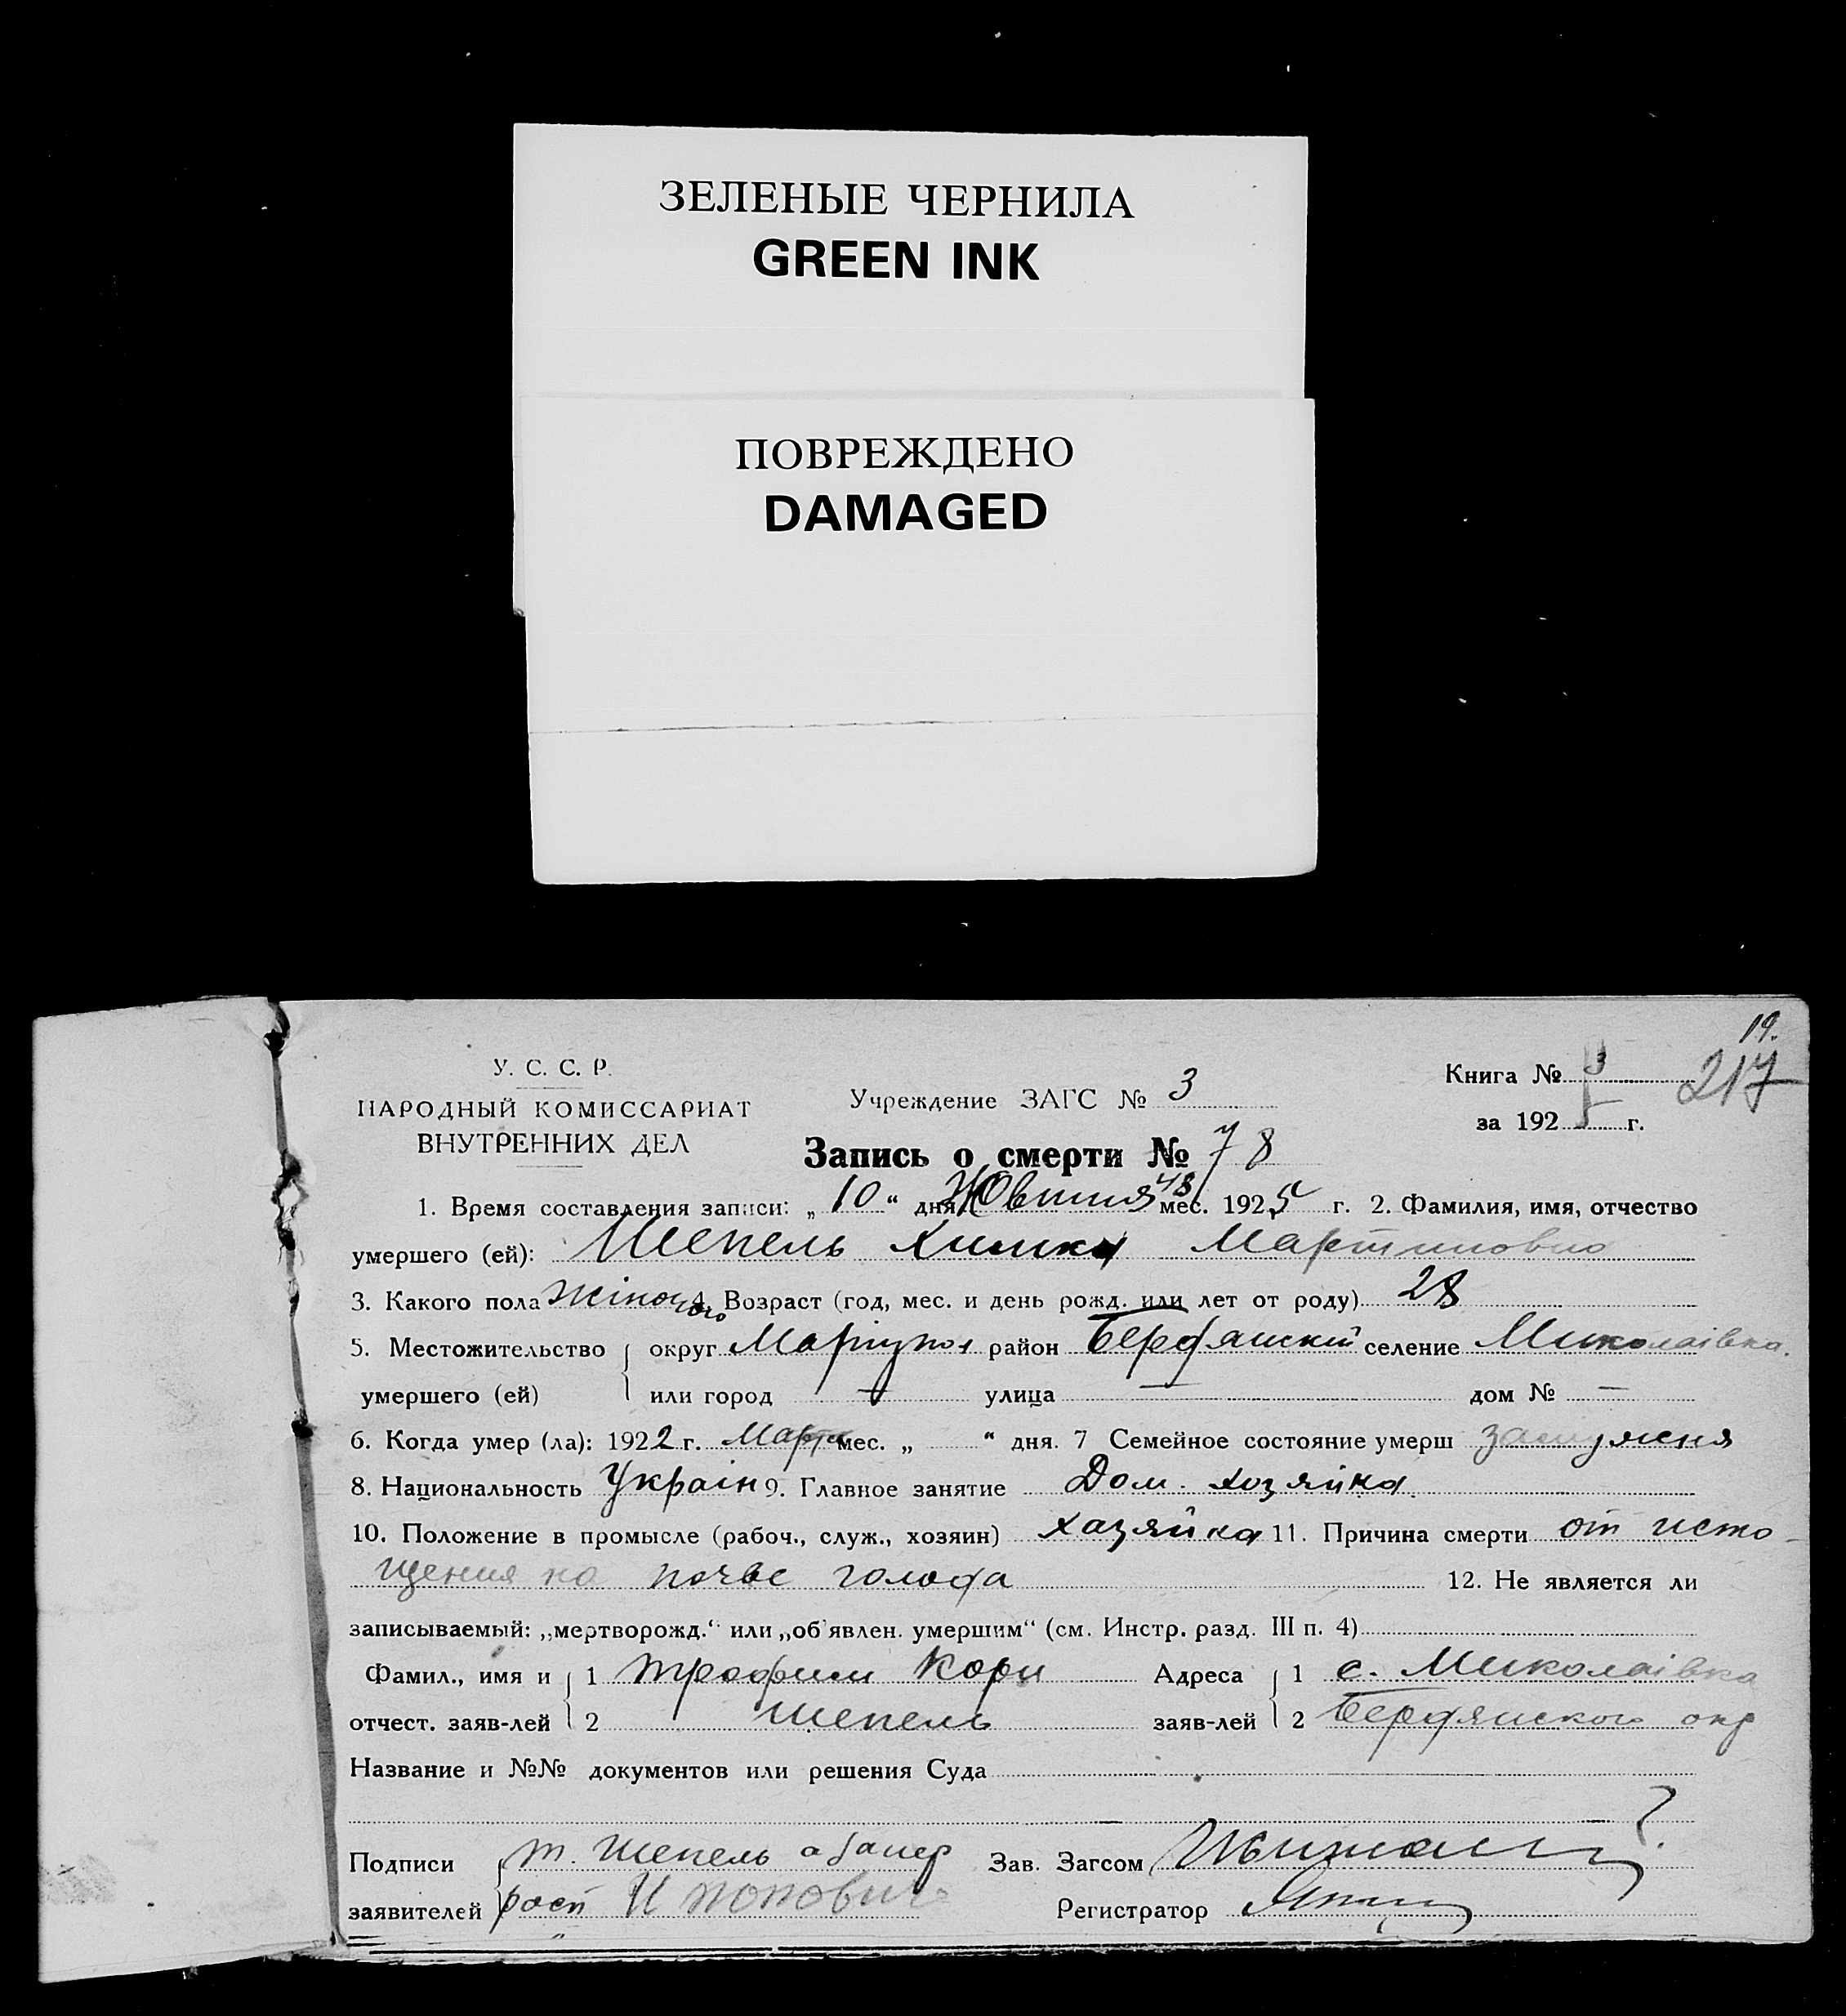 ЗЕЛЕНЫЕ ЧЕРНИЛА
GREEN INK
ПОВРЕЖДЕНО
DAMAGED
19.
217
У. С. С. Р.
НАРОДНЫЙ КОМИССАРИАТ
ВНУТРЕННИХ ДЕЛ
Учреждение ЗАГС № 3
Книга № 3
за 1925 г.
Запись о смерти № 78
1. Время составления записи: „10“ дня Жовтня мес. 1925 г. 2. Фамилия, имя, отчество
умершего (ей): Шепель Химка Мартиновна
3. Какого пола жіночого 4. Возраст (год, мес. и день рожд. или лет от роду) 28
5. Местожительство округ Маріупол район Бердянский селение Миколаівка.
умершего (ей) или город — улица — дом № —
6. Когда умер (ла): 1922 г. Марта мес. „ “ дня. 7 Семейное состояние умерш замужня
8. Национальность Україн 9. Главное занятие Дом. хозяйка.
10. Положение в промысле (рабоч., служ., хозяин) хазяйка 11. Причина смерти от исто-
щения на почве голода 12. Не является ли
записываемый: „мертворожд.“ или „об'явлен. умершим“ (см. Инстр. разд. III п. 4)
Фамил., имя и 1 Трофим Корн Адреса 1 с. Миколаівка
отчест. заяв-лей 2 Шепель заяв-лей 2 Бердянского окр
Название и №№ документов или решения Суда
Подписи Т. Шепель а Зав. Загсом
заявителей росп И Попович Регистратор